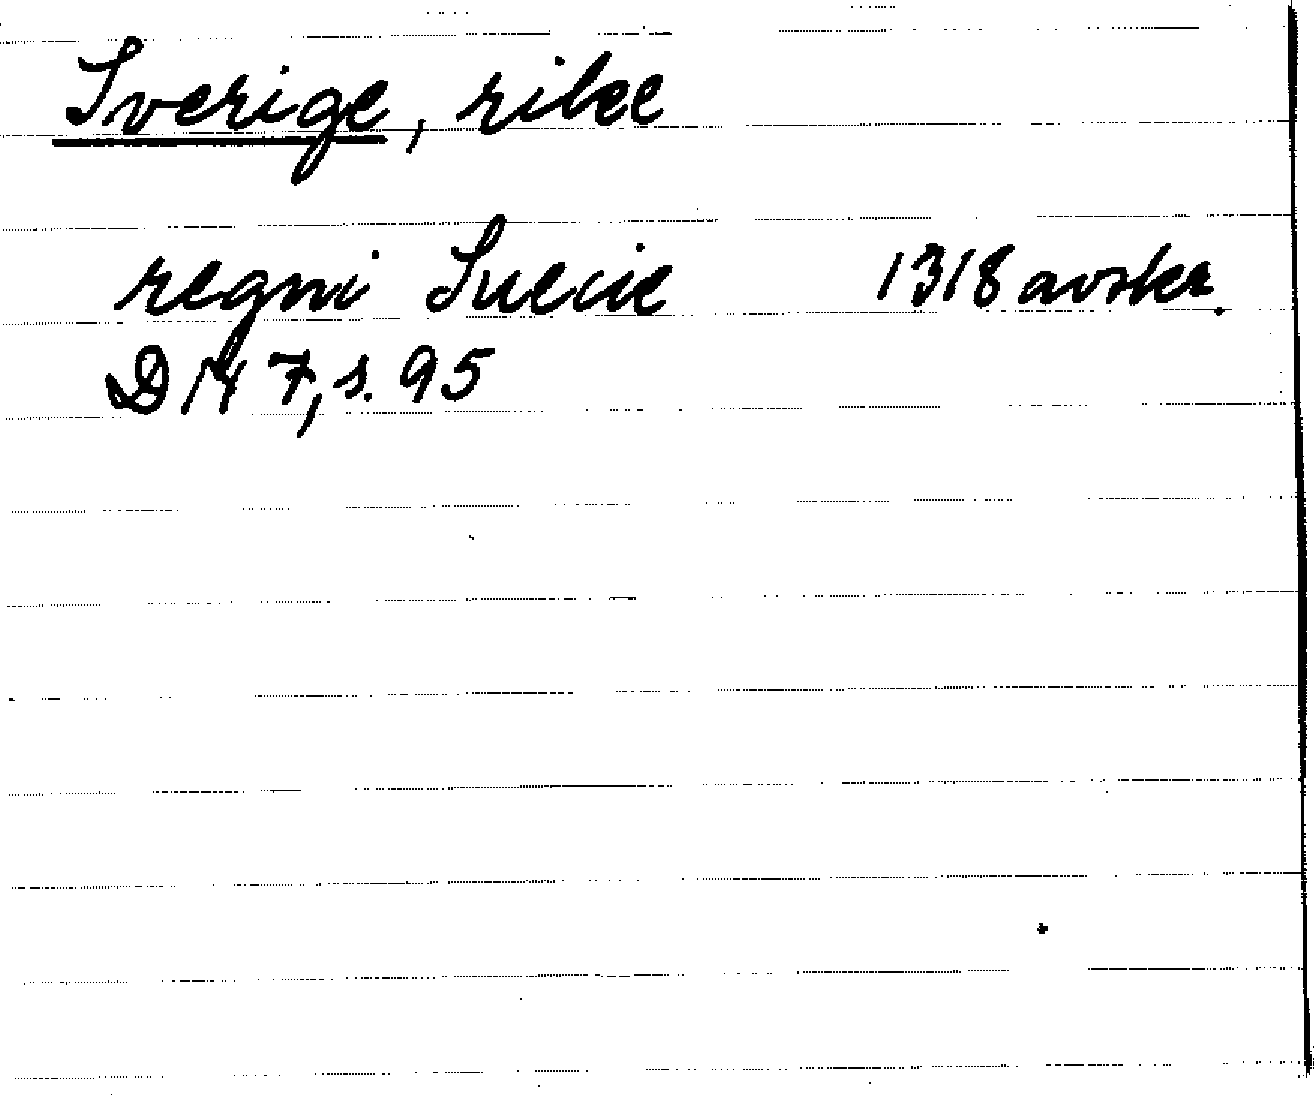 Sverige, rike
regni Suecie 1318 avskr.
D 147, s. 95